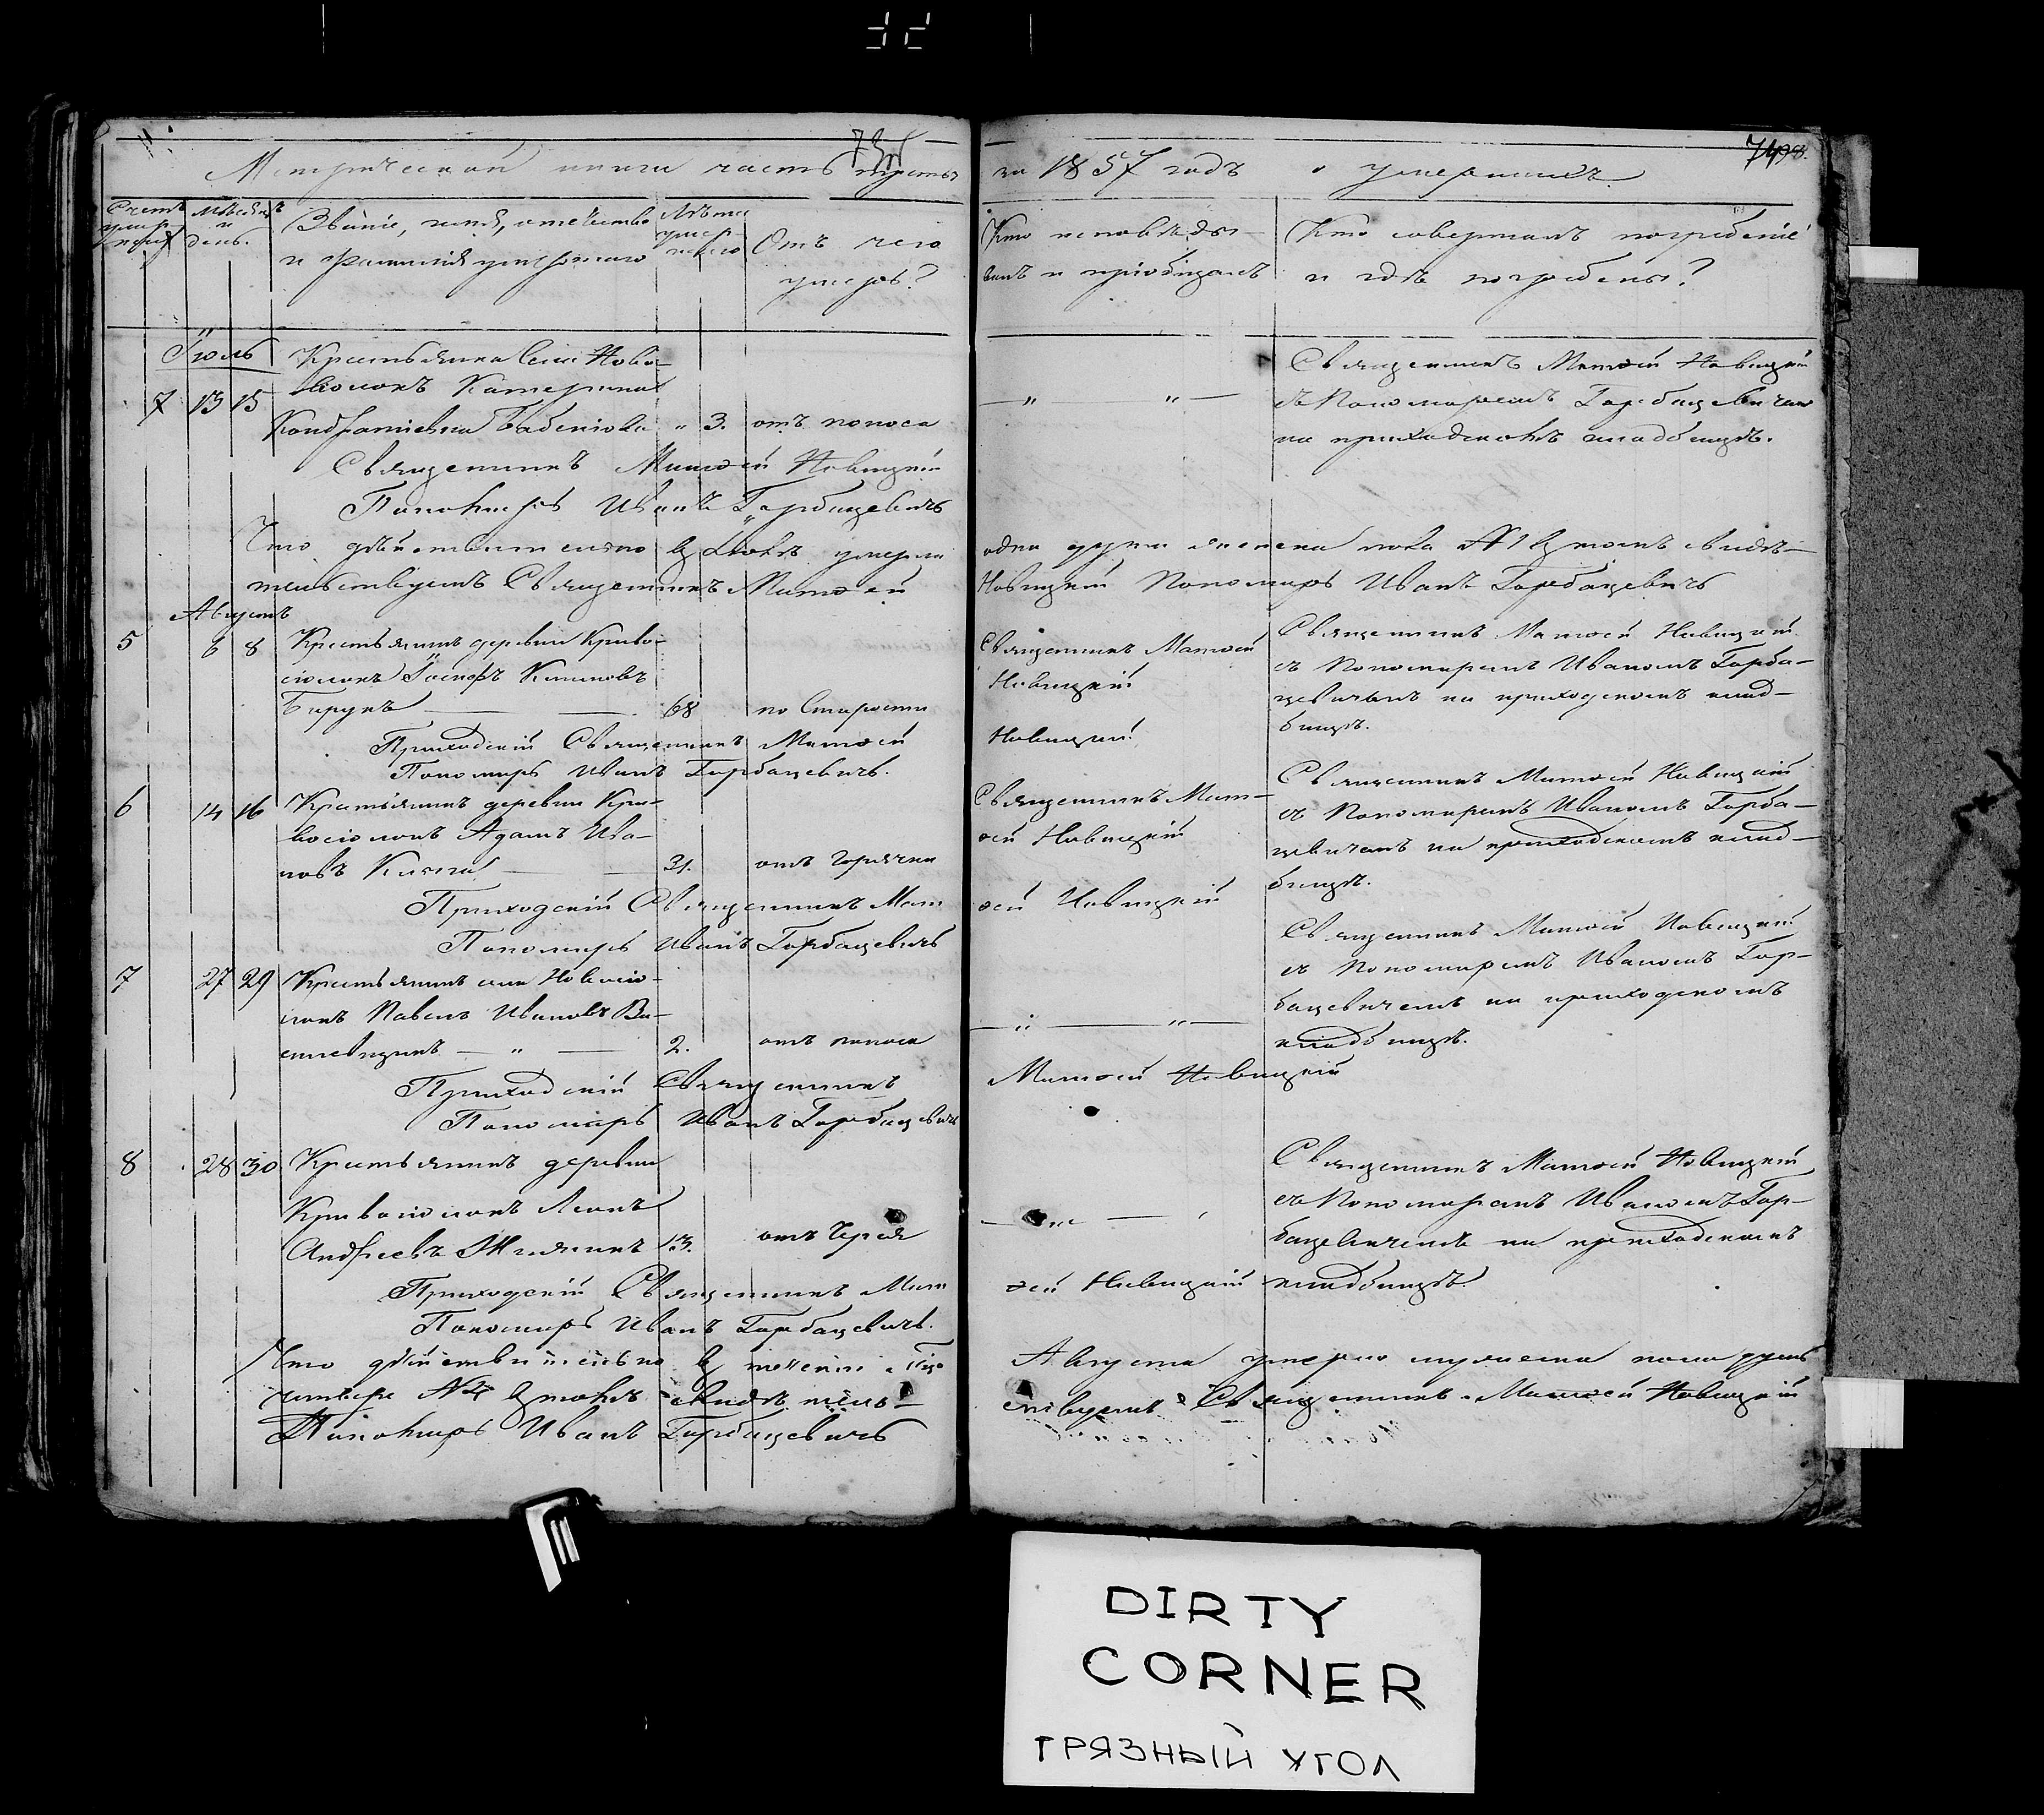 Метрической книги часть третья
за 1857 годъ о умершихъ.
74
Мѣсяцъ и день.
Званіе, имя, отечество
и фамилія умершаго
Лѣта умершаго
Отъ чего
умеръ?
Кто исповѣды-
валъ и пріобщалъ
Кто совершалъ погребеніе
и гдѣ погребены?
Іюль
Крестьянка села Ново-
Катерина
7 13 15
Кондратіевна 3. отъ поноса
Священникъ Матѳей Новицкій
Пономарь Иванъ Горбацевичъ
Священникъ Матѳей Новицкій
съ Пономаремъ Горбацевичемъ
на приходскомъ кладбищѣ.
Что дѣйствительно въ Іюлѣ умерла
одна душа женска пола №1 въ томъ свидѣ-
тельствуемъ Священникъ Матѳей
Новицкій Пономарь Иванъ Горбацевичъ
Августъ
5 6 8 Крестьянинъ деревни Криво-
Іосифъ
68 по Старости
Священникъ Матѳей
Новицкій
Священникъ Матѳей Новицкій
съ Пономаремъ Иваномъ Горба-
цевичемъ на приходскомъ клад-
бищѣ.
Приходскій Священникъ Матѳей
Новицкій
Пономарь Иванъ Горбацевичъ.
6 14 16 Крестьянинъ деревни Кри-
Адамъ Ива-
новъ 31. отъ горячки
Священникъ Мат-
ѳей Новицкій
Священникъ Матѳей Новицкій
съ Пономаремъ Иваномъ Горба-
цевичемъ на приходскомъ клад-
бищѣ.
Приходскій Священникъ Мат
ѳей Новицкій
Пономарь Иванъ Горбацевичъ
7 27 29 Крестьянинъ села Новосіо-
локъ Павелъ Ивановъ Ва-
2. отъ поноса
Священникъ Матѳей Новицкій
съ Пономаремъ Иваномъ Гор-
бацевичемъ на приходскомъ
кладбищѣ.
Приходскій Священникъ
Матѳей Новицкій
Пономарь Иванъ Горбацевичъ
8 28 30 Крестьянинъ деревни
Кривосіолокъ
Андреевъ 13. отъ
Священникъ Матѳей Новицкій
съ Пономаремъ Иваномъ Гор-
бацевичемъ на приходскомъ
кладбищѣ.
Приходскій Священникъ Мат
ѳей Новицкій
Пономарь Иванъ Горбацевичъ.
Что дѣйствительно въ теченіи
Августа умерло мужеска пола душъ
четыре №4 въ томъ свидѣтель-
ствуемъ Священникъ Матѳей Новицкій
Пономарь Иванъ Горбацевичъ
DIRTY
CORNER
ГРЯЗНЫЙ УГОЛ